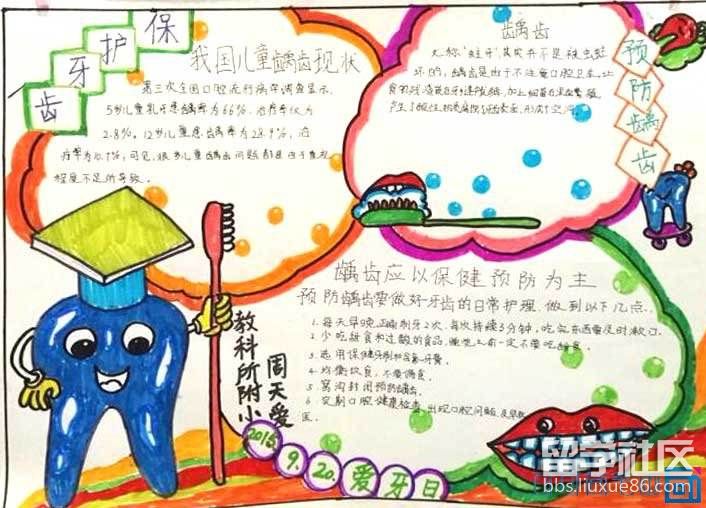 保护牙齿
我国儿童龋齿现状
第三次全国口腔流行病学调查显示,
5岁儿童乳牙患龋率为66%,治疗率仅为
2.8%。12岁儿童患龋率为28.9%,治
疗率为10.7%,可见,很多儿童龋齿问题都是由于重视
程度不足所导致。
龋齿
又称"蛀牙",其实并不是被虫蛀
坏的,龋齿是由于不注意口腔卫生,让
产生了酸性的
预防龋齿
龋齿应以保健预防为主
预防龋齿要做好牙齿的日常护理,做到以下几点.
1. 每天早晚正确刷牙2次,每次持续3分钟,吃完东西要及时漱口.
2. 少吃甜食和过酸的食品,睡觉之前一定不要吃甜食.
3. 选用保健牙刷和含氟牙膏.
4. 均衡饮食,不要偏食.
5. 窝沟封闭预防龋齿.
6. 定期口腔健康检查,出现口腔问题及早就
医.
教科所附小
周天爱
9.20.爱牙日
留学社区
bbs.liuxue86.com